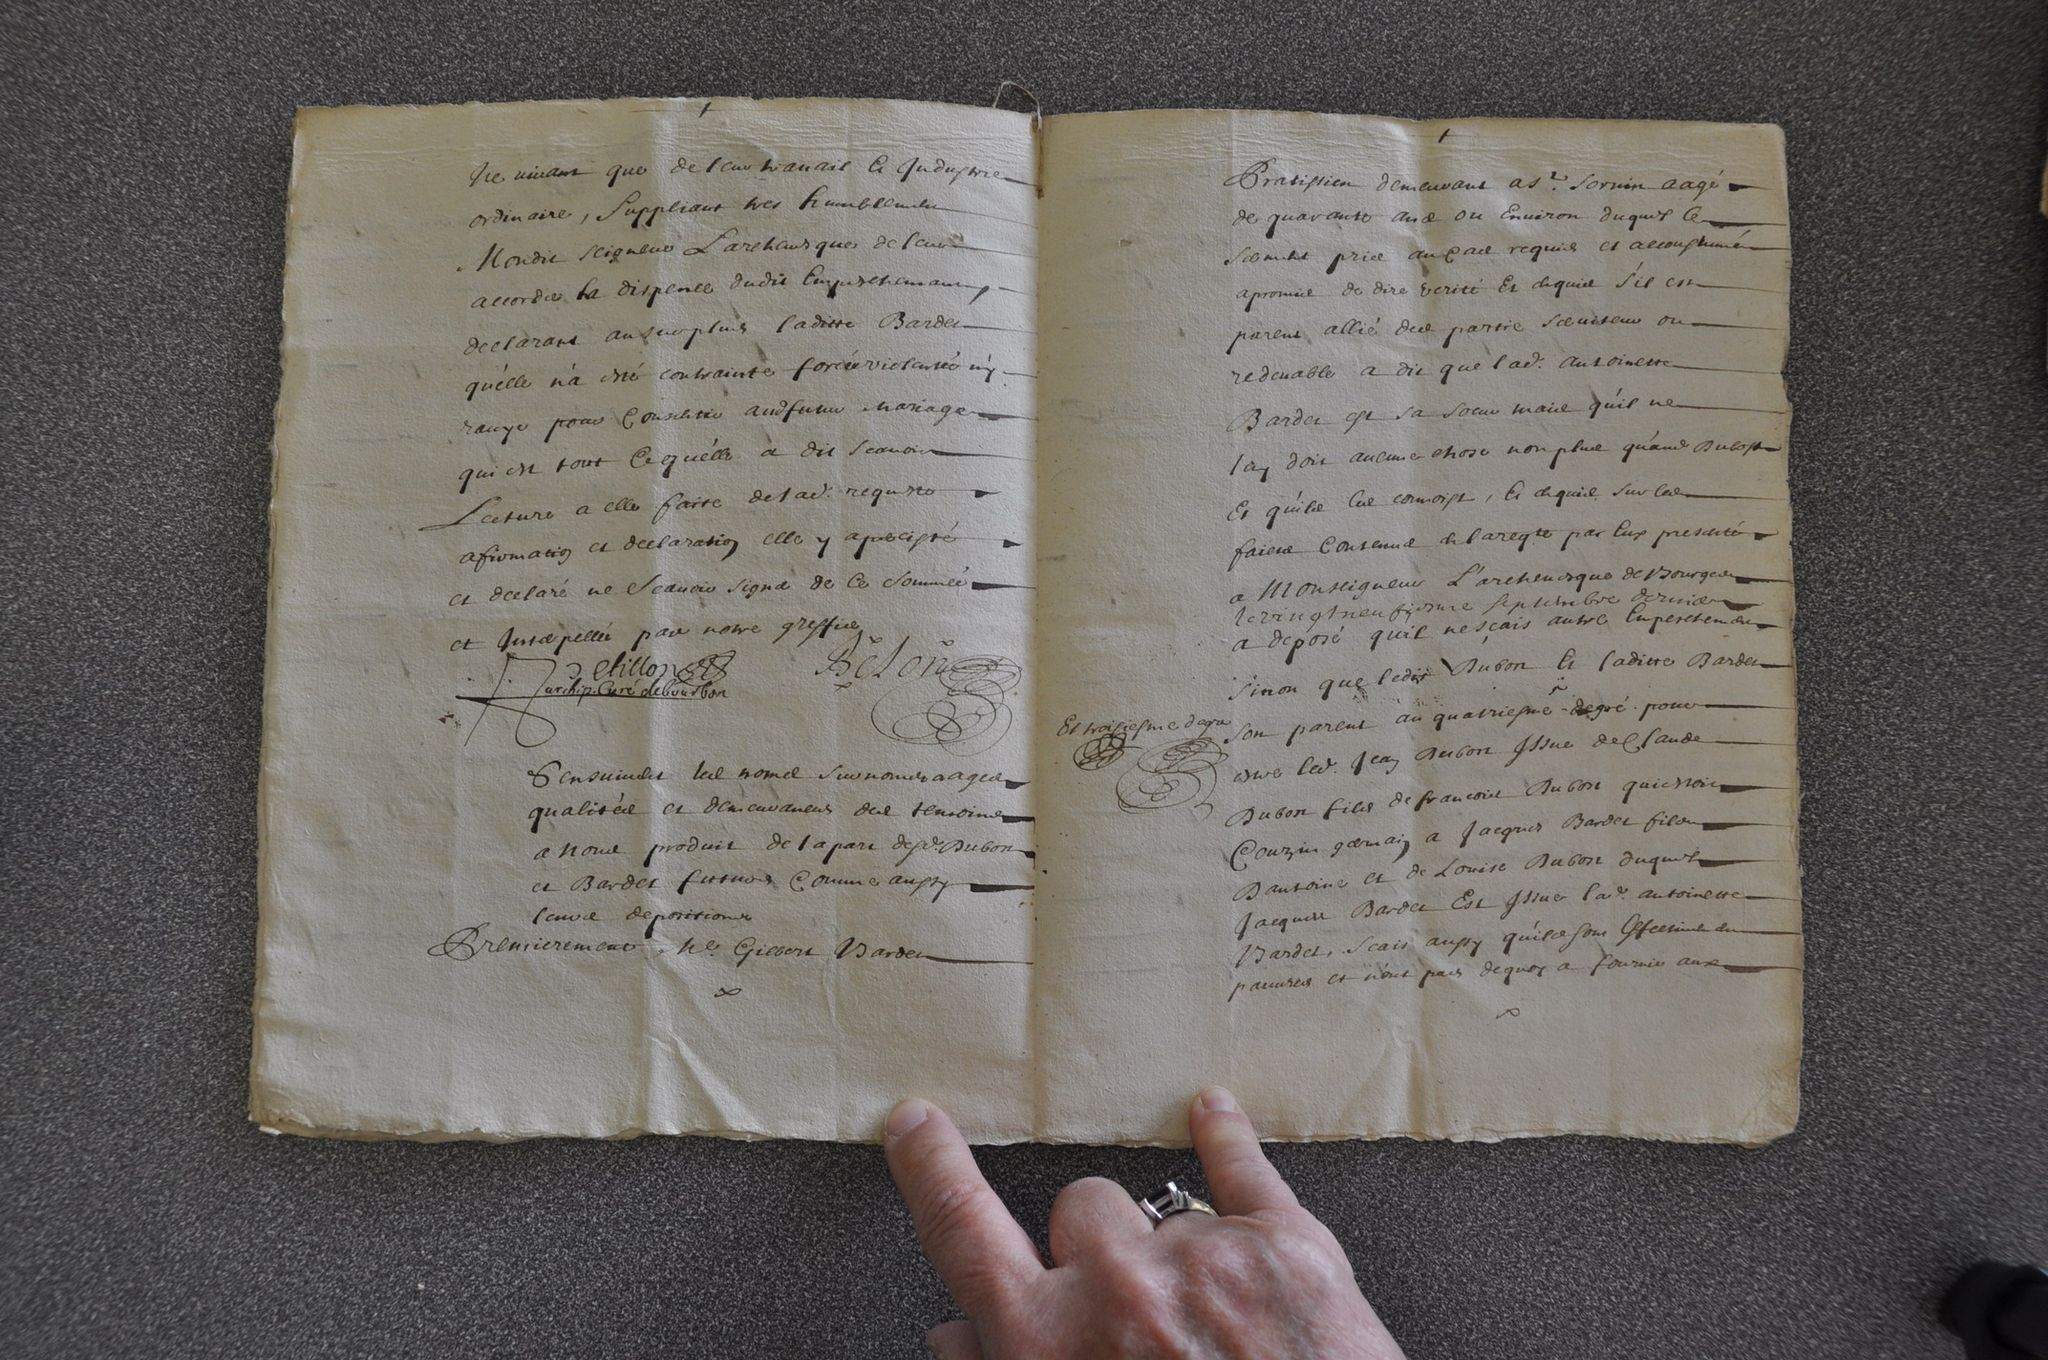 Ne vivant que de leur travail et Industrie
ordinaire, Suppliant tres humblement
Mondit seigneur Larchevesque de leur
accorder la dispence dudit Empeschement,
declarant au surplus laditte Bardet
qu'elle n'a esté contrainte forcée violentée ny
ravye pour Consentir audt futur Mariage
qui est tout Ce qu'elle a dit scavoir
Lecture a elle faite de lad. requeste
afirmation et declaration elle y a persisté
et declaré ne Scavoir signer de Ce sommée
et Interpellée par notre greffier
Petillon
archip. Curé de bourbon
Belon
S'ensuivent les noms surnoms aages
qualités et demeurances des temoins
a Nous produit de la part desd. Dubon
et Bardet futturs Comme aussy
leurs depositions
Premierement, Me Gilbert Bardet
Pratissien demeurant a St. Sornin aagé
de quarante ans ou Environ duquel le
serment pris au Cas requis et accoustumé
a promis de dire verité Et enquis s'il est
parent allié des parties serviteur ou
redevable a dit que lad. antoinette
Bardet est sa soeur mais qu'il ne
luy doit aucune chose non plus qu'aud Dubost
Et qu'il les connoist, Et enquis sur les
faicts Contenus en la reqte par Eux presenté
a Monseigneur L'archevesque de Bourges
le vingt neufiesme septembre dernier
a deposé qu'il ne sçait autre Empeschement
sinon que ledit Dubon Et laditte Bardet
son parent au quatriesme degré pour
Et troisiesme degré
estre led. Jean Dubon Issue de Claude
Dubon fils de francois Dubon qui estoit
Couzin germain a Jacques Bardet fils
D'antoine et de Louise Dubon duquel
Jacques Bardet Est Issue lad. antoinette
Bardet, scait aussy qu'ils sont Effectivement
pauvres et n'ont pas de quoy a fournir aux